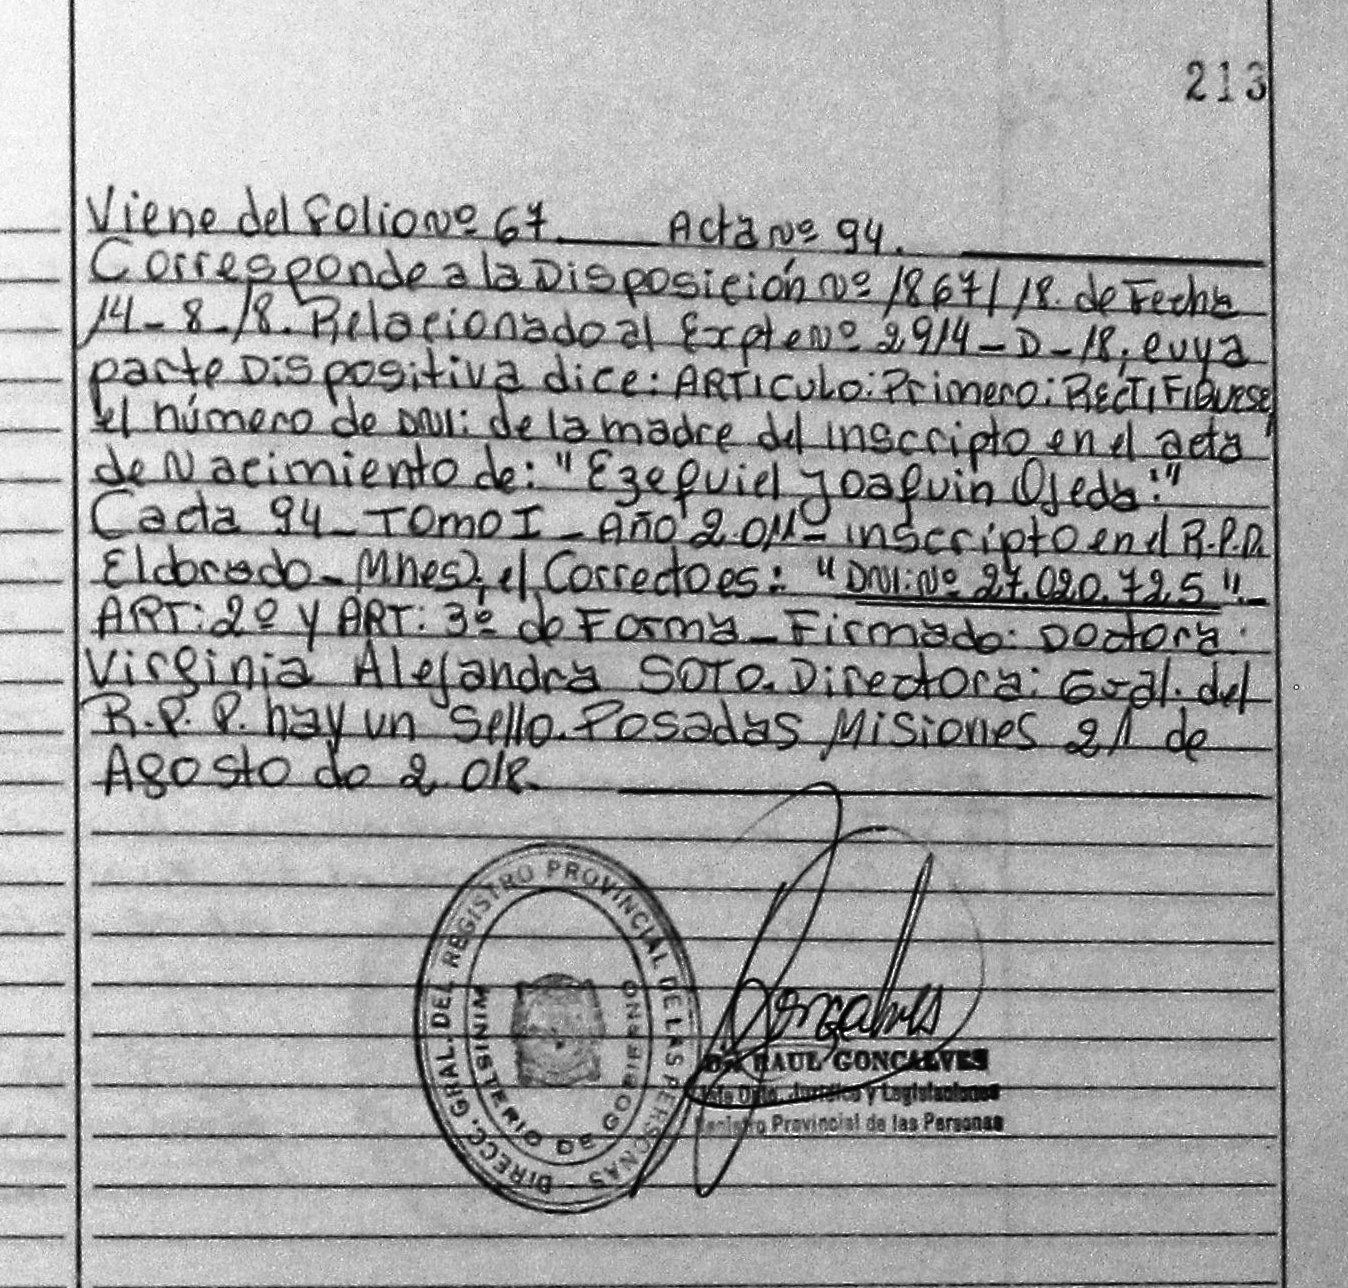 213
Viene del folio Nº 67 Acta Nº 94.
Corresponde a la Disposición Nº 1867/18. de Fecha
14-8-18. Relacionado al Expte Nº 2914-D-18, cuya
parte Dispositiva dice: ARTICULO: Primero: RECTIFIQUESE,
el número de DNI: de la madre del inscripto en el acta
de Nacimiento de: "Ezequiel Joaquin Ojeda:"
Cacta 94 - TOMO I - Año 2.011 - inscripto en el R.P.P.
Eldorado - Mnes), el Correcto es: "DNI: Nº 27.020.725".-
ART: 2º y ART: 3º de Forma - Firmado: Doctora:
Virginia Alejandra SOTO. Directora: Gral. del
R.P.P. hay un Sello. Posadas Misiones 21 de
Agosto de 2.018.
DIRECC. GRAL. DEL REGISTRO PROVINCIAL DE LAS PERSONAS
MINISTERIO DE GOBIERNO
Gonçalves
RAUL GONCALVES
Jefe Dpto. Jurídico y Legislaciones
Registro Provincial de las Personas